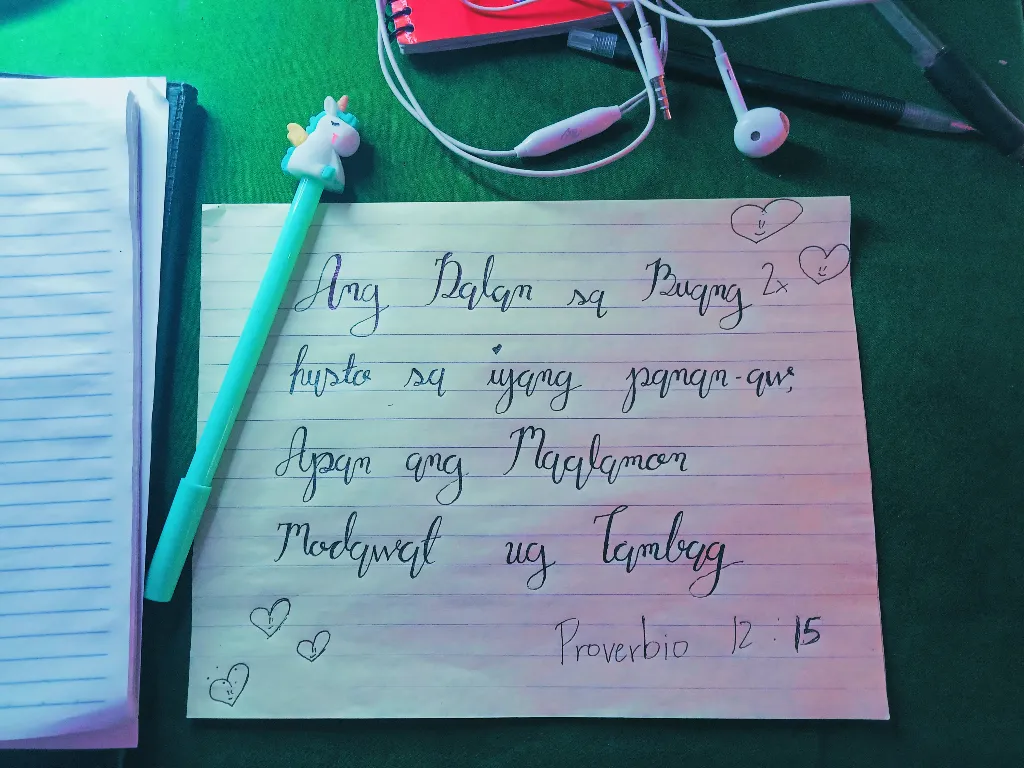 Ang Dalan sa Buang 2x
husto sa iyang panan-aw,
Apan ang Maalamon
Modawat ug Tambag
Proverbio 12:15